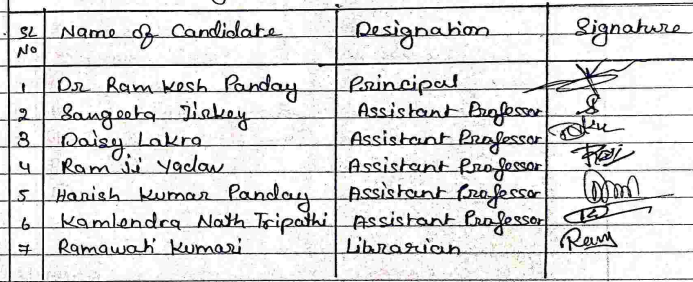 SL No Name of Candidate Designation Signature
1 Dr Ram Kesh Panday Principal
2 Sangeeta Tirkey Assistant Professor
3 Daisy Lakra Assistant Professor
4 Ram Ji Yadav Assistant Professor
5 Harish Kumar Panday Assistant Professor
6 Kamlendra Nath Tripathi Assistant Professor
7 Ramawati Kumari Librarian